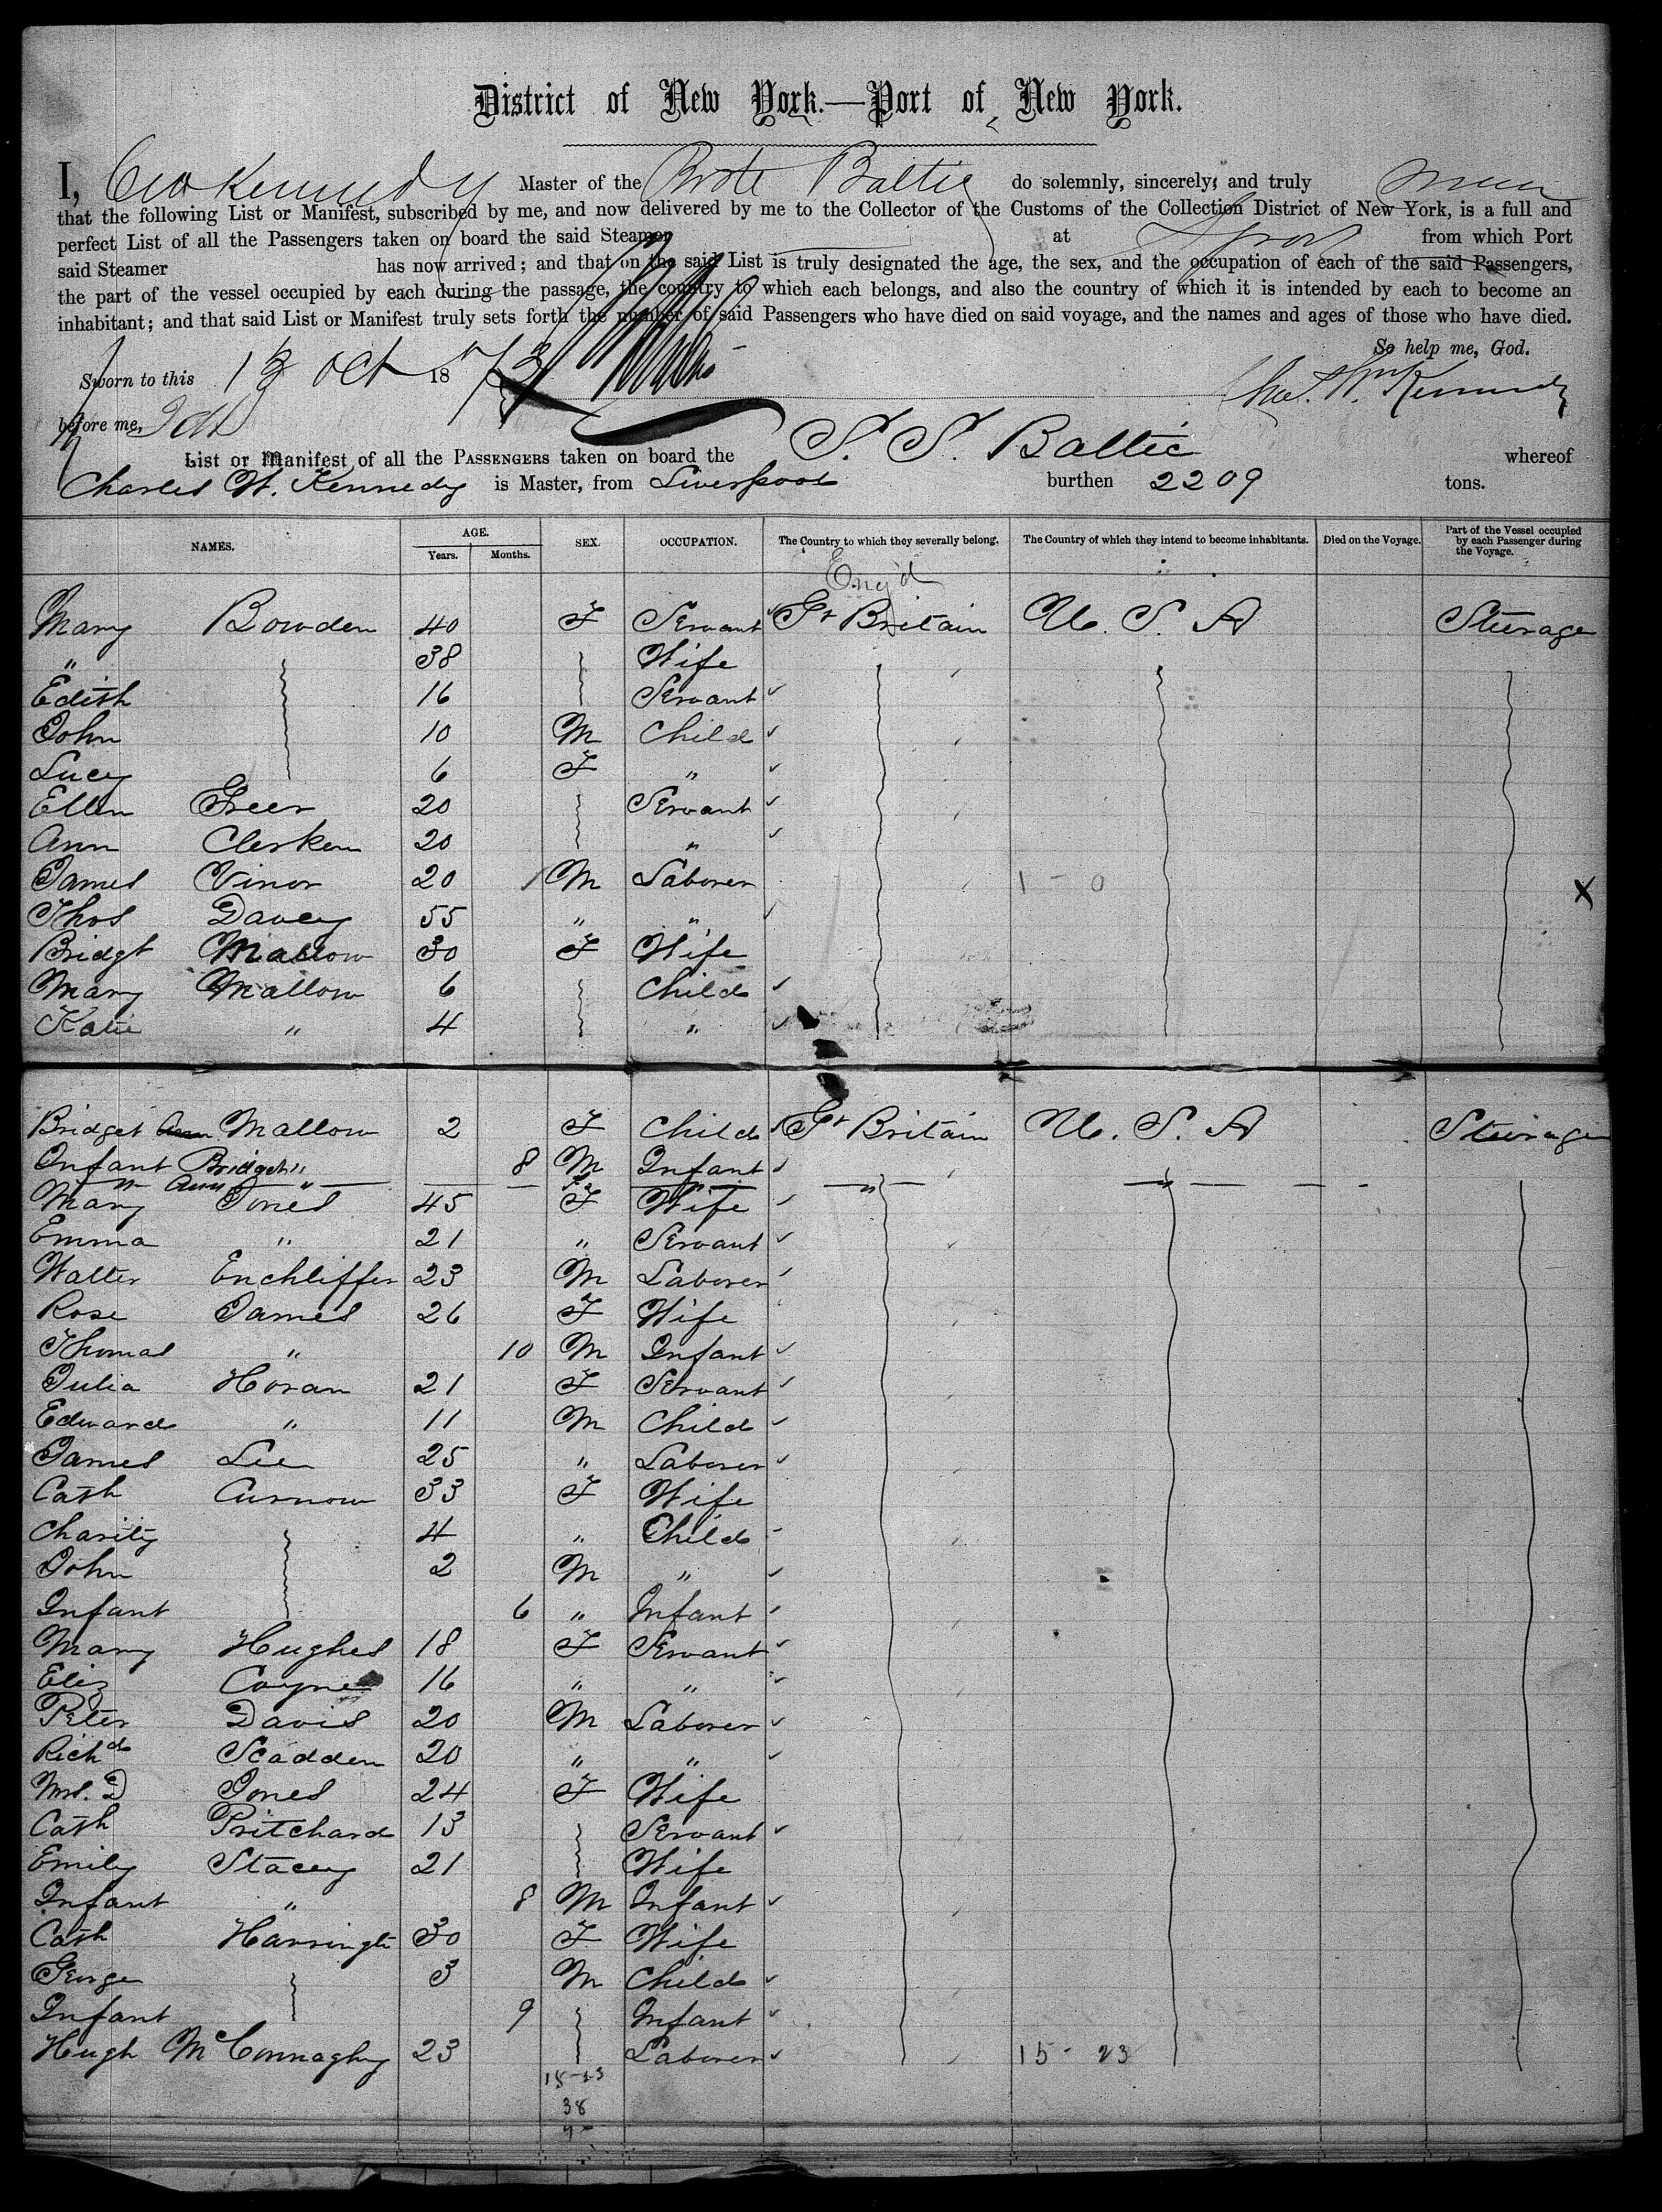 District of New York.—Port of New York.
I, Cha Kennedy Master of the Brit Baltic do solemnly, sincerely, and truly swear
that the following List or Manifest, subscribed by me, and now delivered by me to the Collector of the Customs of the Collection District of New York, is a full and
perfect List of all the Passengers taken on board the said Steamer at Lpool from which Port
said Steamer has now arrived; and that on the said List is truly designated the age, the sex, and the occupation of each of the said Passengers,
the part of the vessel occupied by each during the passage, the country to which each belongs, and also the country of which it is intended by each to become an
inhabitant; and that said List or Manifest truly sets forth the number of said Passengers who have died on said voyage, and the names and ages of those who have died.
So help me, God.
Sworn to this 13 Oct 1873
Chas. W. Kennedy
before me,
List or Manifest of all the PASSENGERS taken on board the S. S. Baltic whereof
Charles W. Kennedy is Master, from Liverpool burthen 2209 tons.
NAMES. AGE. Years. Months. SEX. OCCUPATION. The Country to which they severally belong. The Country of which they intend to become inhabitants. Died on the Voyage. Part of the Vessel occupied by each Passenger during the Voyage.
Eng'd
Mary Bowden 40 F Servant Gt Britain U. S. A Steerage
" 38 Wife
Edith 16 Servant
John 10 M Child
Lucy 6 F "
Ellen Greer 20 Servant
Ann Clerken 20 "
James Vinor 20 M Laborer 1 - 0 X
Thos Davey 55 " "
Bridgt Mallow 30 F Wife
Mary Mallow 6 Child
Katie " 4 "
Bridget Ann Mallow 2 F Child Gt Britain U. S. A Steerage
Infant Bridget " 8 M Infant
" Ann "
Mary Jones 45 F Wife
Emma " 21 " Servant
Walter Enchliffer 23 M Laborer
Rose James 26 F Wife
Thomas " 10 M Infant
Julia Horan 21 F Servant
Edward " 11 M Child
James Lee 25 " Laborer
Cath Curnow 33 F Wife
Charity 4 " Child
John 2 M "
Infant 6 " Infant
Mary Hughes 18 F Servant
Eliz Coyne 16 " "
Peter Davis 20 M Laborer
Richd Scadden 20 " "
Mrs. D Jones 24 F Wife
Cath Pritchard 13 Servant
Emily Stacey 21 Wife
Infant " 8 M Infant
Cath Harringtn 30 F Wife
George 3 M Child
Infant 9 Infant
Hugh McConnaghy 23 Laborer 15 - 23
15-23
38